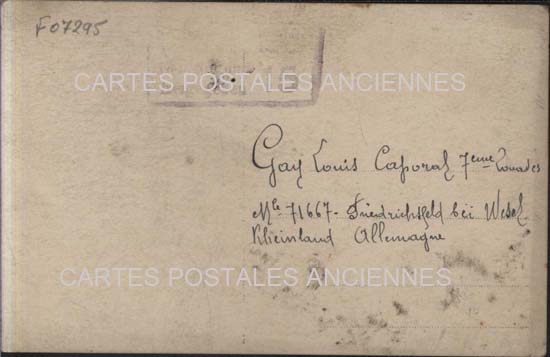 F07295
CARTES POSTALES ANCIENNES
Gay Louis Caporal 7eme
Mle 71667 - Friedrichsfeld bei Wesel
Rheinland Allemagne
CARTES POSTALES ANCIENNES